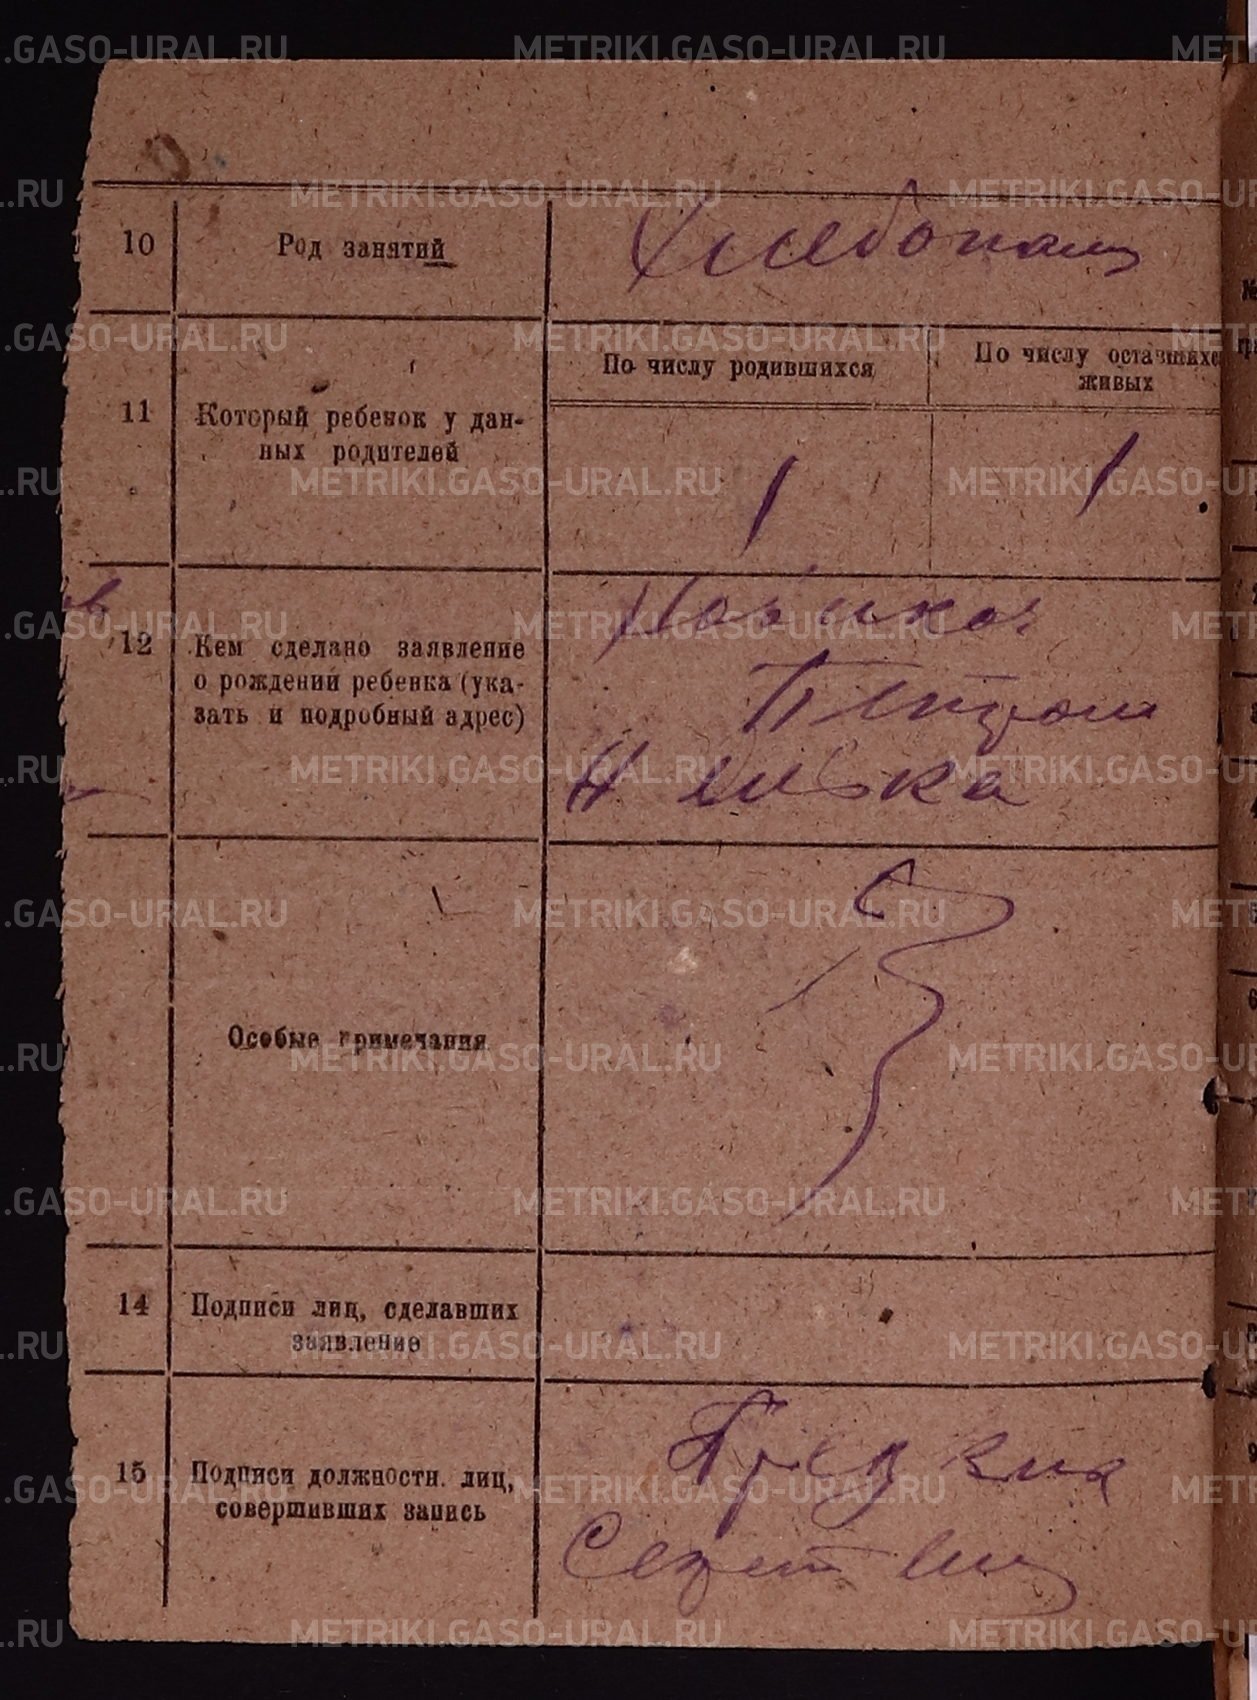 10 Род занятий Хлебопаш
По числу родившихся По числу оставшихся
живых
11 Который ребенок у дан-
ных родителей
1 1
12 Кем сделано заявление
о рождении ребенка (ука-
зать и подробный адрес)
Новиков
Петром
Особые примечания
14 Подписи лиц, сделавших
заявление
15 Подписи должностн. лиц,
совершивших запись
METRIKI.GASO-URAL.RU